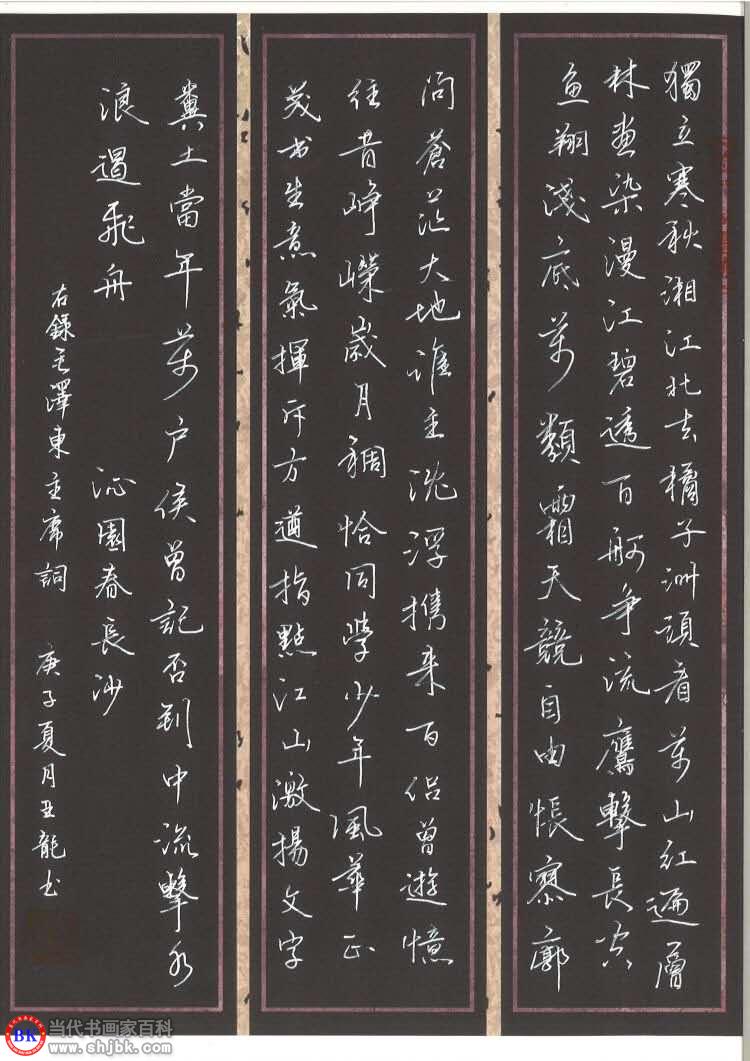 獨立寒秋湘江北去橘子洲頭看萬山紅遍層
林盡染漫江碧透百舸争流鷹擊長空
魚翔淺底萬類霜天競自由悵寥廓
问蒼茫大地誰主沈浮攜来百侣曾遊憶
往昔崢嶸歲月稠恰同學少年風華正
茂书生意氣揮斥方遒指點江山激揚文字
糞土當年萬户侯曾記否到中流擊水
浪遏飛舟
沁園春長沙
右錄毛澤東主席詞 庚子夏月丑龍书
BK
当代书画家百科
www.shjbk.com